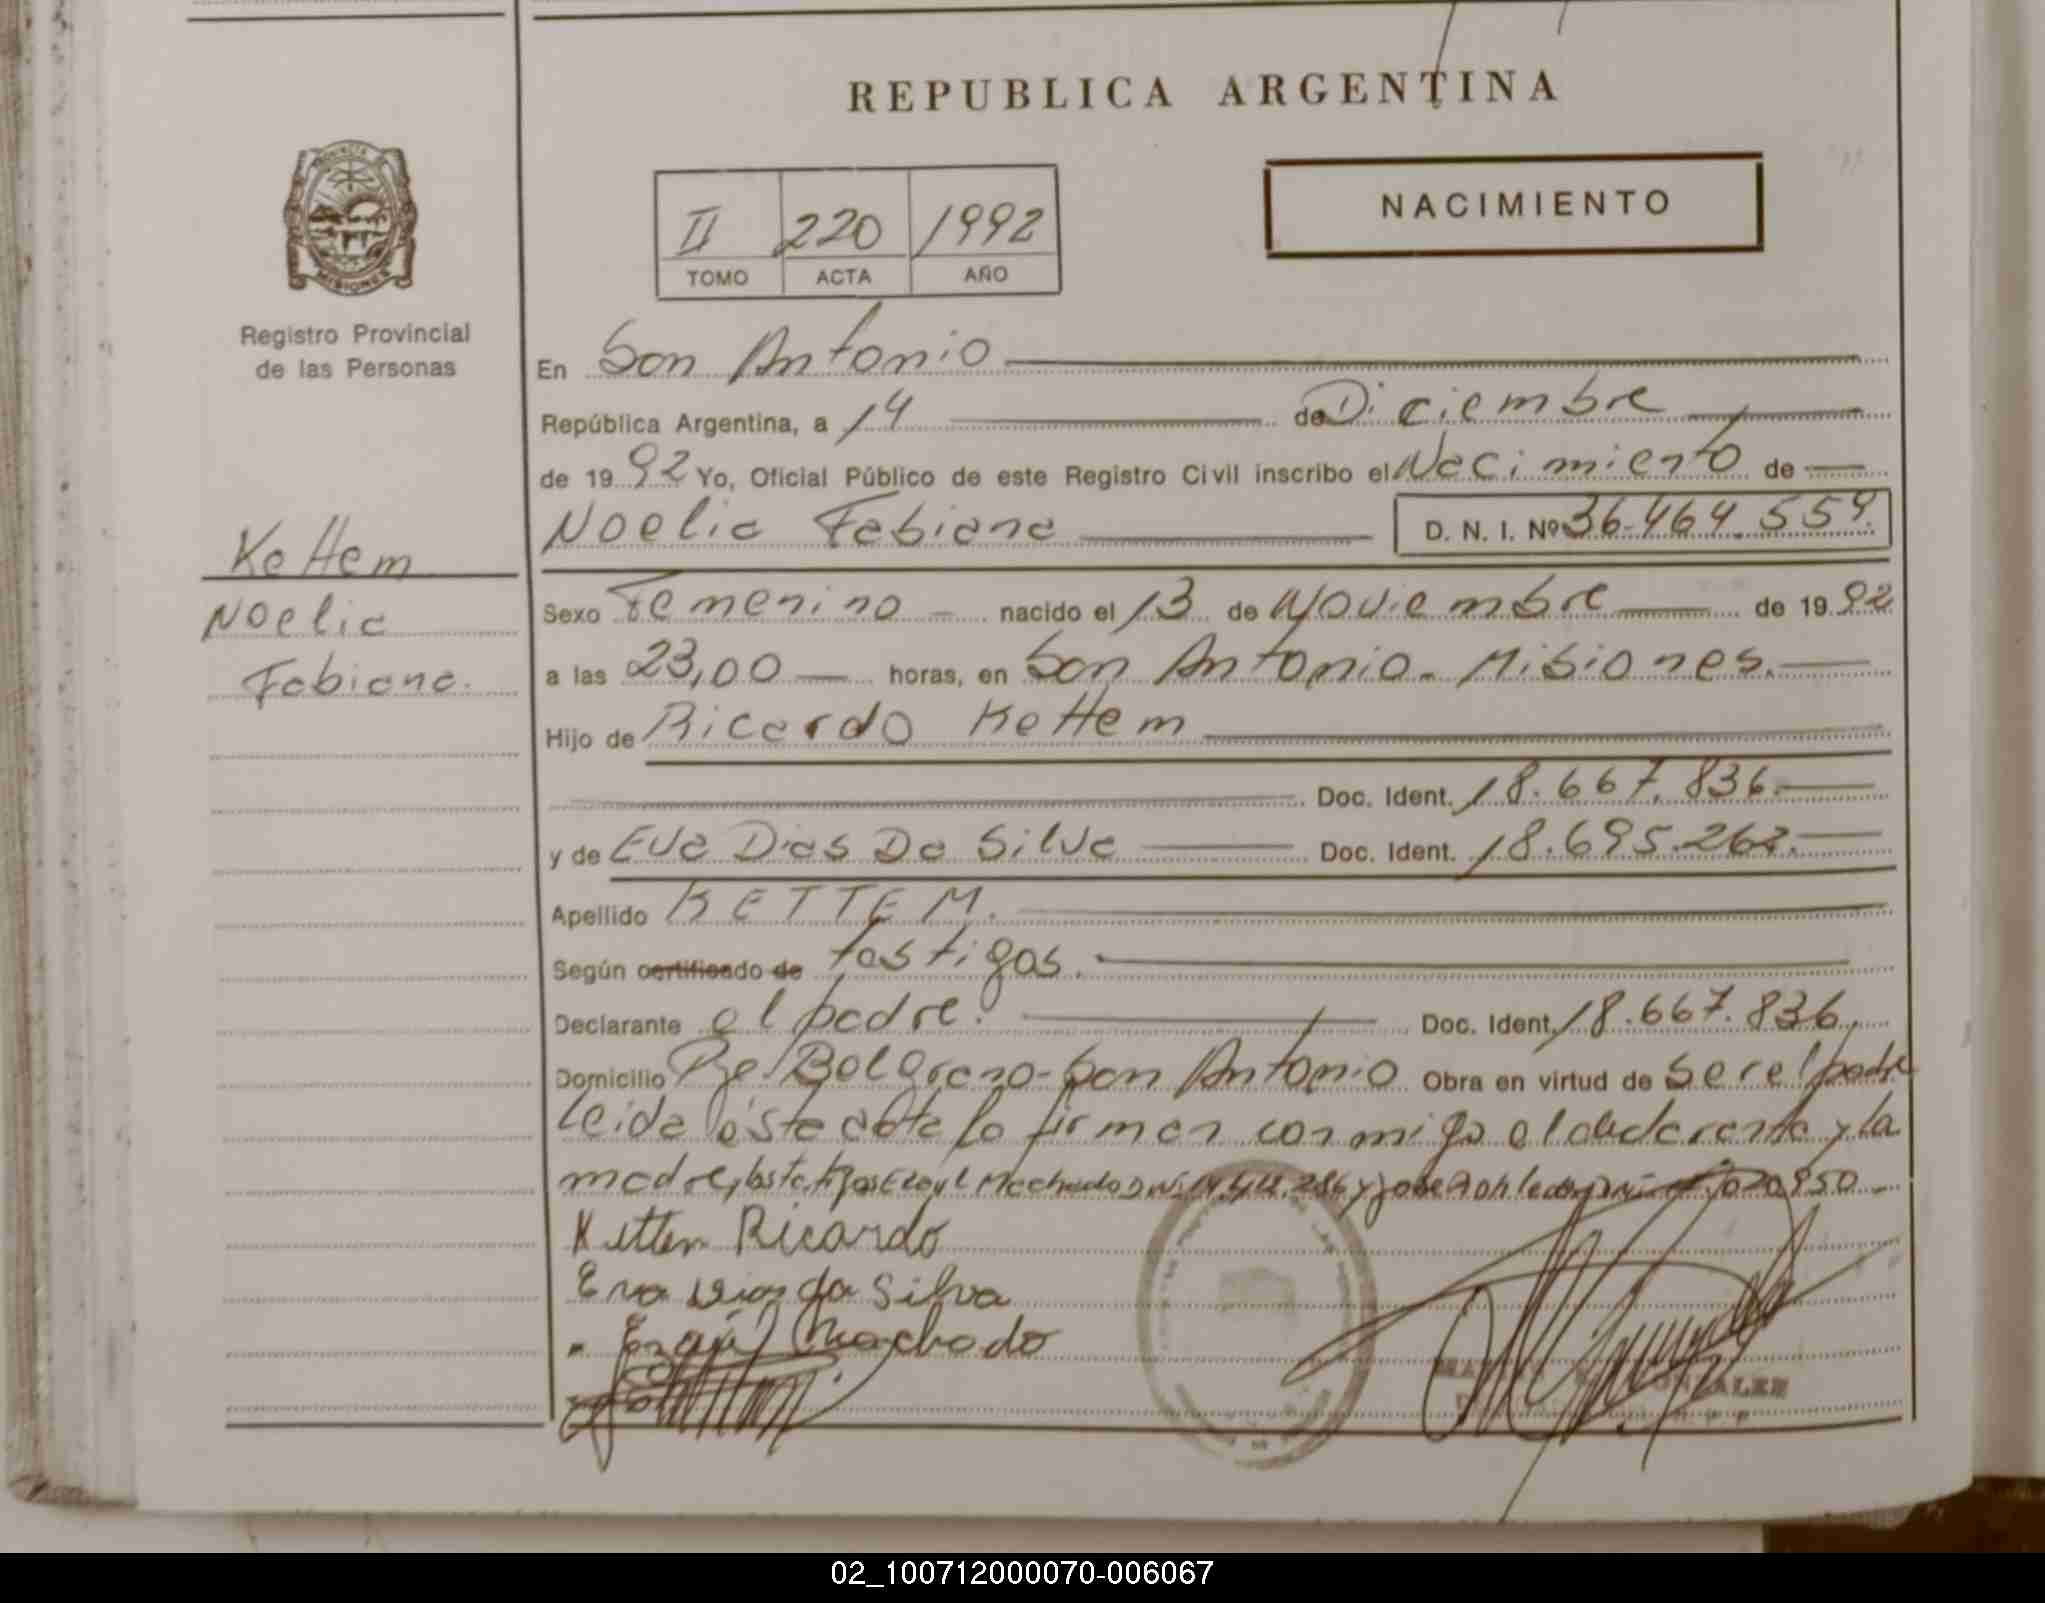 REPUBLICA ARGENTINA
NACIMIENTO
II 220 1992
TOMO ACTA AÑO
PROVINCIA DE
MISIONES
Registro Provincial
de las Personas
En San Antonio
República Argentina, a 14 de Diciembre
de 1992 Yo, Oficial Público de este Registro Civil inscribo el Nacimiento de
Noelia Fabiana D. N. I. Nº 36.464.559.
Kettem
Noelia
Fabiana.
Sexo Femenino nacido el 13 de Noviembre de 1992
a las 23,00 horas, en San Antonio. Misiones.
Hijo de Ricardo Kettem
Doc. Ident. 18.667.836.
y de Eva Dias Da Silva Doc. Ident. 18.695.262.
Apellido KETTEM.
Según certificado de testigos.
Declarante el padre. Doc. Ident. 18.667.836.
Domicilio Pje Belgrano - San Antonio Obra en virtud de ser el padre
Leida ésta acta la firman conmigo el declarante y la
madre, los testigos Machado y José
Kettem Ricardo
Eva Dias da Silva
Machado
GONZALEZ
02_100712000070-006067